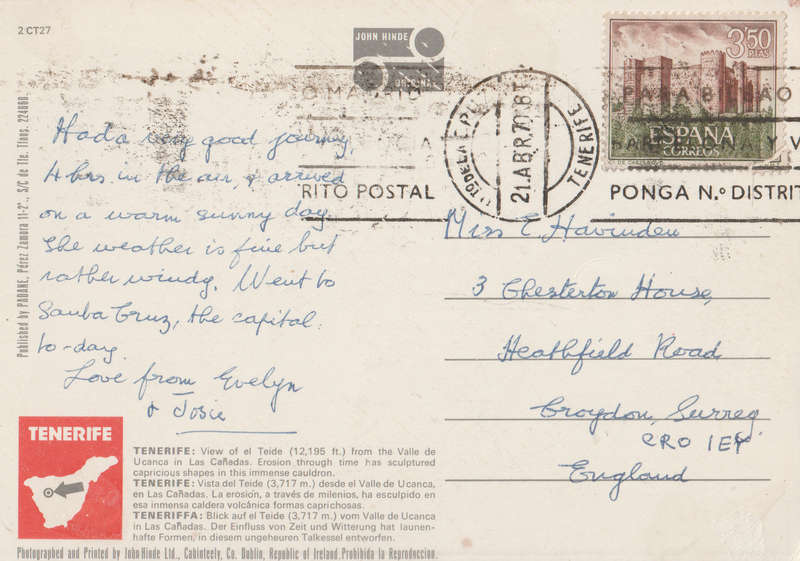 2 CT27
JOHN HINDE
ORIGINAL
PUERTO DE LA CRUZ
21.ABR.70.8T
TENERIFE
PARA BILBAO
RITO POSTAL
PONGA N.º DISTRIT
3'50
PTAS
ESPAÑA
CORREOS
Had a very good journey
4 hrs in the air, & arrived
on a warm sunny day.
The weather is fine but
rather windy. Went to
Santa Cruz, the capital
to-day
Love from Evelyn
& Josie
Miss E. Havinden
3 Chesterton House,
Heathfield Road
Croydon, Surrey
CRO 1EY
England
TENERIFE
TENERIFE: View of el Teide (12,195 ft.) from the Valle de
Ucanca in Las Cañadas. Erosion through time has sculptured
capricious shapes in this immense cauldron.
TENERIFE: Vista del Teide (3,717 m.) desde el Valle de Ucanca,
en Las Cañadas. La erosión, a través de milenios, ha esculpido en
esa inmensa caldera volcánica formas caprichosas.
TENERIFFA: Blick auf el Teide (3,717 m.) vom Valle de Ucanca
in Las Cañadas. Der Einfluss von Zeit und Witterung hat launen-
hafte Formen, in diesem ungeheuren Talkessel entworfen.
Photographed and Printed by John Hinde Ltd., Cabinteely, Co. Dublin, Republic of Ireland. Prohibida la Reproduccion.
Published by PABANE, Pérez Zamora 11-2º., S/C de Tfe. Tfnos. 224060